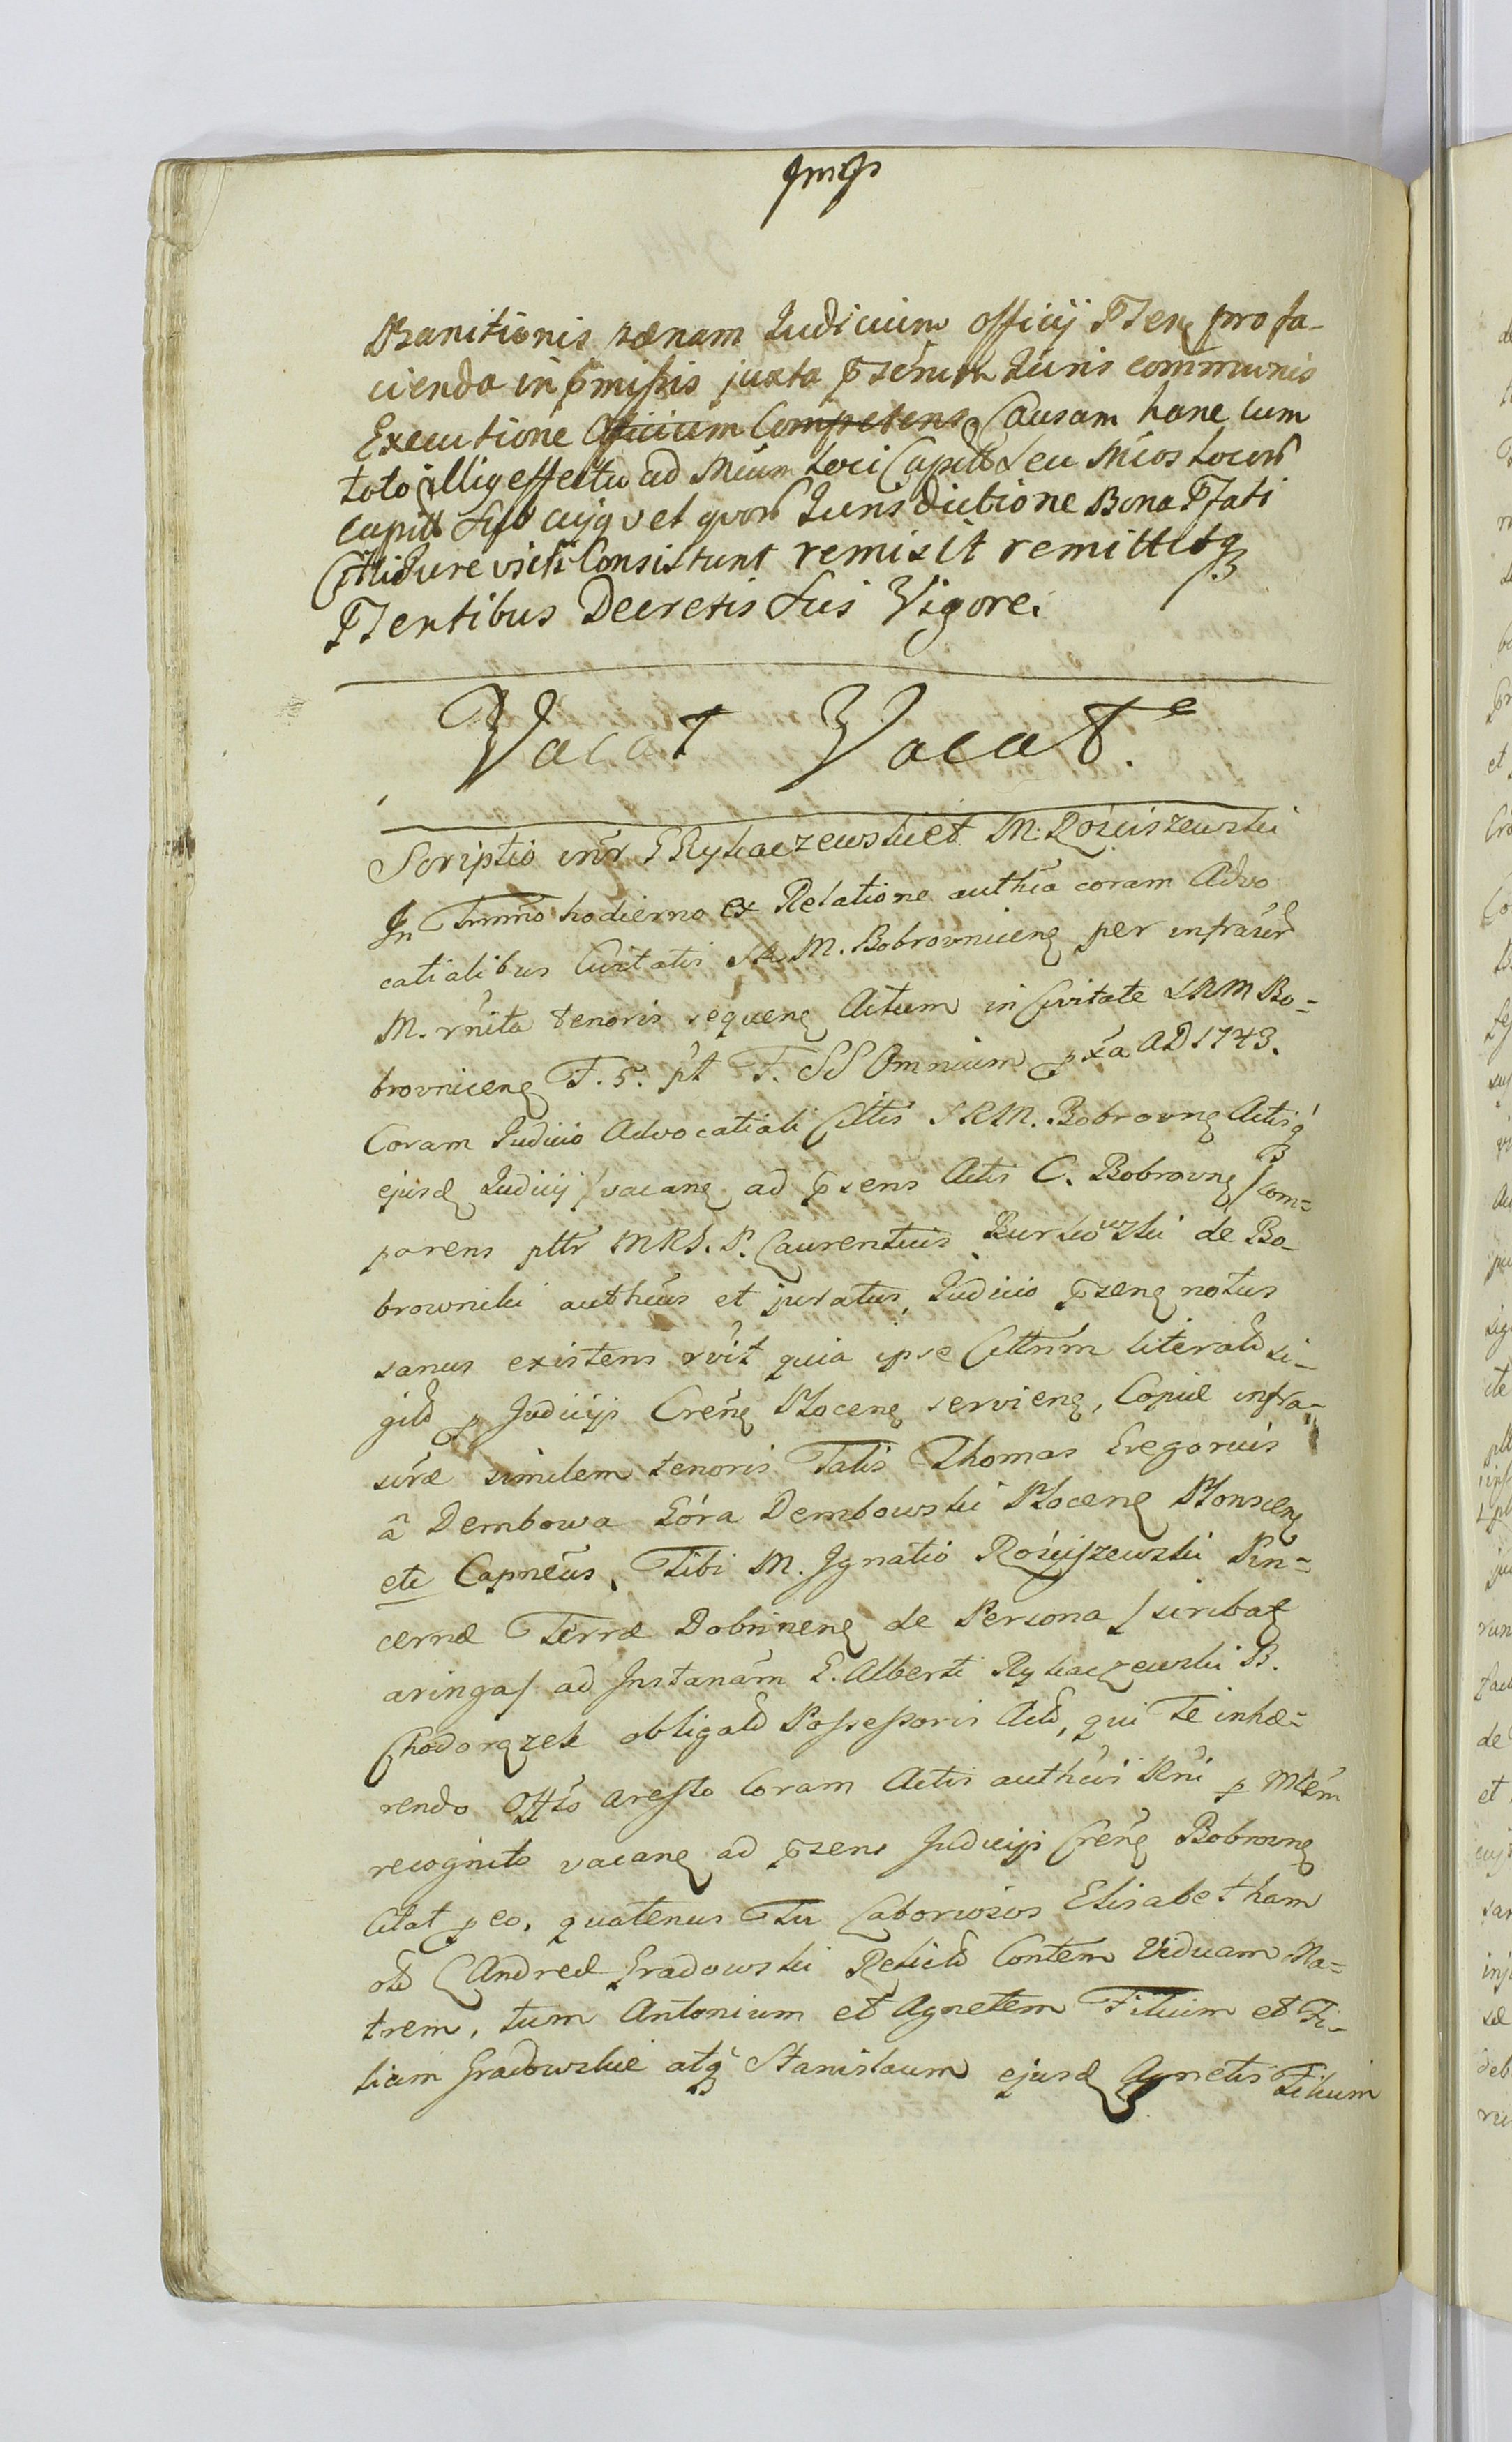 Banitionis pœnam Judicium officij Psenę pro fa-
cienda in pmissis juxta psćrum Juris communis
Executione Officium Competens Causam hanc cum
toto illig effectu ad Mium Loci Capitt Seu Mios Locor
capitt Sub cujg vel quor Jurisdictione Bona Pfati
Citti Jure victi Consistunt remisit remittitq
Psentibus Decretis Sui Vigore.
Vacat Vacat.
Scriptio intr G Rykaczewski et M: Rościszewski
In Termino hodierno ex Relatione autheca coram Advo
catialibus Civitatis SRM. Bobrovnicenę per infrascr
M. rnita tenoris sequenę Actum in Civitate SRM Bo-
brovnicenę F. 5. pt F. SS Omnium pxa AD 1743.
Coram Judicio Advocatiali Cittis SRM. Bobrovnę Actisq
ejusd Judicij / vacanę ad psens Actis C. Bobrovnę / com-
parens pttr MRS. P. Laurentius Burkowski de Bo-
browniki authcus et juratus, Judicio psenę notus
sanus existens rvit quia ipse Cittnm literald si-
gild p Judicijs Crenę Plocenę servienę, Copiæ infra-
scræ similem tenoris Talis Thomas Gregorius
â Dembowa Góra Dembowski Plocenę Plonscenę
etc Capneus, Tibi M. Ignatio Rościszewski Pin-
cernæ Terræ Dobrinenę de Persona / scribat
aringa / ad Instanam G. Alberti Rykaczewski B.
Chodorązek obligald Possessoris Actd, qui Te inhæ-
rendo Offto Aresto Coram Actis authcis Rni p Mtem
recognito vacanę ad psens Judicijs Crenę Bobrovnę
Citat p eo, quatenus Tu Laboriosos Elisabetham
otd Andreæ Gradowski Relictd Contem Viduam Ma-
trem, tum Antonium et Agnetem Filium et Fi-
liam Gradowskie atq Stanislaum ejusd Agnetis Filium